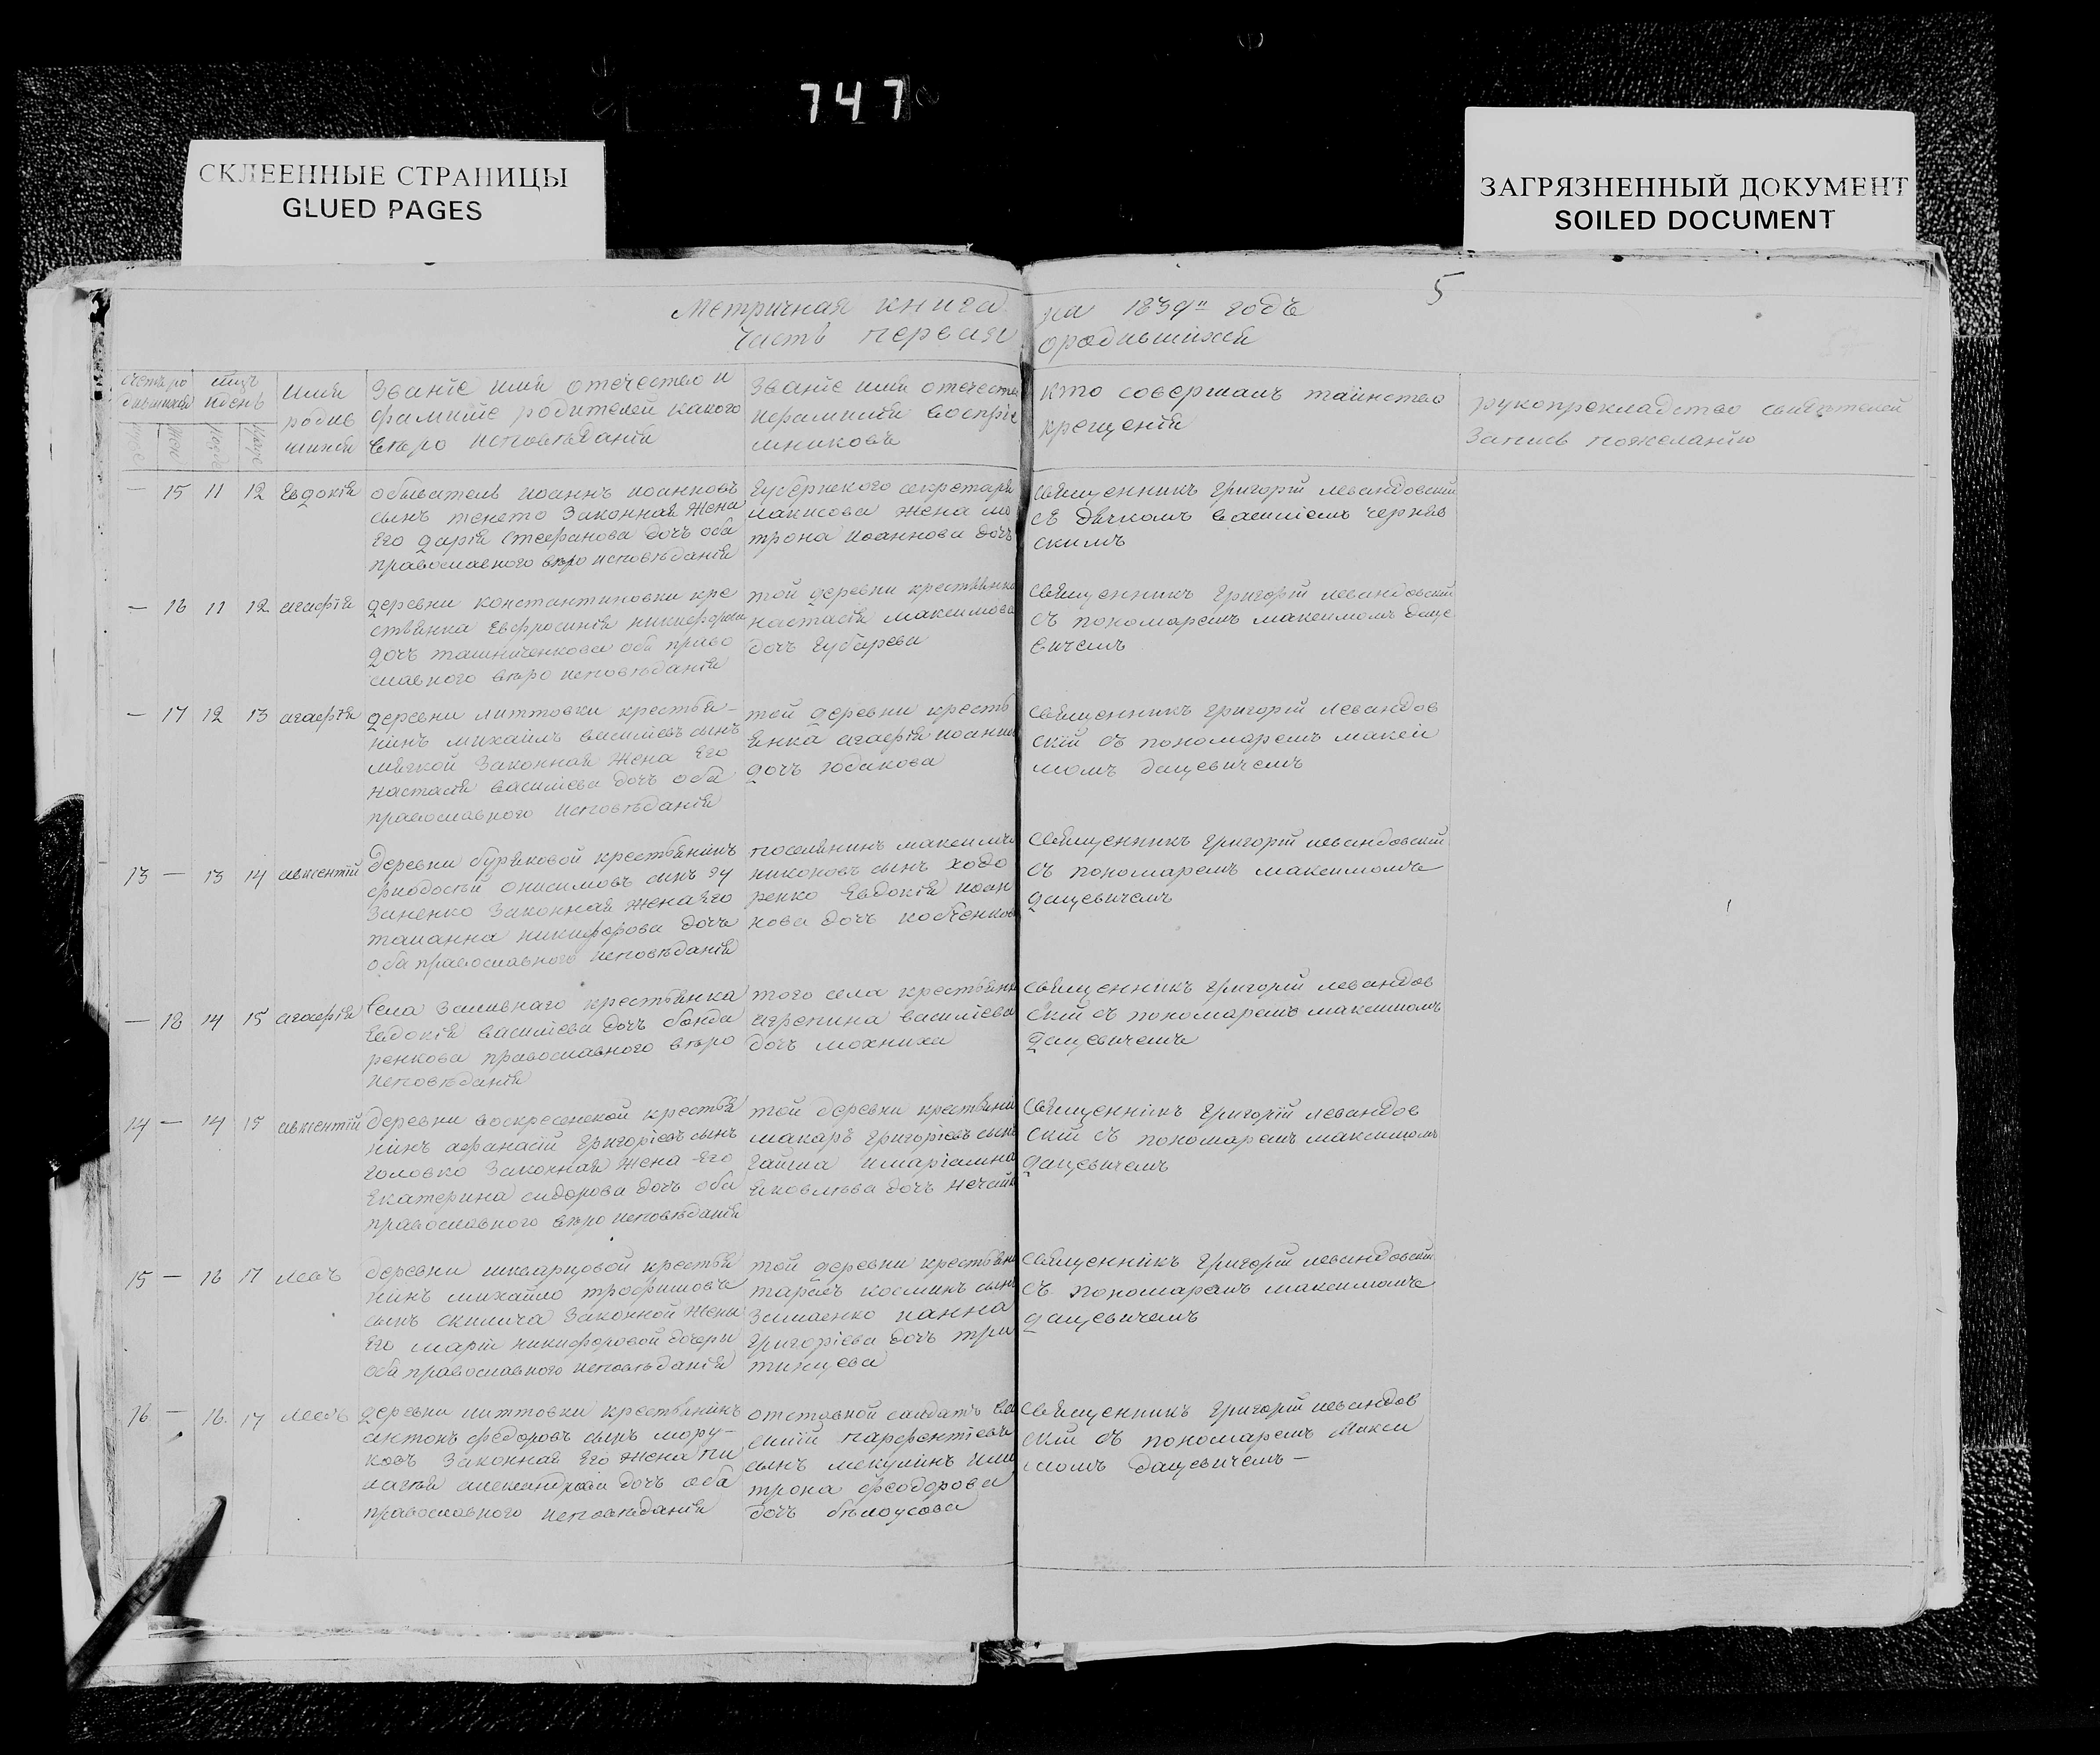 747
СКЛЕЕННЫЕ СТРАНИЦЫ
GLUED PAGES
ЗАГРЯЗНЕННЫЙ ДОКУМЕНТ
SOILED DOCUMENT
5
Метричная книга на 1839й годъ
Часть первая ородившихся
имя
родив
шихся
Званіе имя отечество и
фамиліе родителей какого
вѣро исповѣданія
Званіе имя отечество
ифамилія воспріе
мниковъ
кто совершалъ таинство
крещенія
рукоприкладство свидѣтелей
Запись пожеланію
— 15 11 12 Евдокія
обыватель иоаннъ иоанновъ
сынъ Законная Жена
Его дарія Стефанова дочъ оба
православного вѣро исповѣданія
Губернского секретаря
Жена ма
трона иоаннова дочъ
Священникъ Григорій левандовскій
съ дячкомъ василіемъ черняв
скимъ
— 16 11 12 агафія
деревни константиновки кре
стьянка Евфросинія никифорова
дочъ оба право
славного вѣро исповѣданія
той деревни крестьянка
настасія максимова
дочъ Губарева
Священникъ Григорій левандовскій
съ пономаремъ максимомъ даце
вичемъ
— 17 12 13 агафія
деревни литтовки крестья-
нинъ михаилъ василіевъ сынъ
мягкой Законная Жена Его
настасія василіева дочъ оба
православного исповѣданія
той деревни кресть
янка агафія иоаннова
дочъ юдакова
Священникъ Григорій левандов
скій съ пономаремъ макси
момъ дацевичемъ
13 — 13 14 авксентій
деревни буряковой крестьянинъ
онисимовъ сынъ гу
Законная Жена Его
татианна никифорова дочъ
оба православного исповѣданія
поселянинъ максимъ
никоновъ сынъ ходо
ренко Евдокія иоан
нова дочъ
Священникъ Григорій левандовскій
съ пономаремъ максимомъ
дацевичемъ
— 18 14 15 агафія
Села Заливнаго крестьянка
Евдокія василіева дочъ бонда
ренкова православного вѣро
исповѣданія
того села крестьянка
агрепина василіева
дочъ мохниха
Священникъ Григорій левандов
скій съ пономаремъ максимомъ
дацевичемъ
14 — 14 15 авксентій
деревни воскресенской крестья
нинъ афанасій Григоріевъ сынъ
головко Законная Жена Его
Екатерина сидорова дочъ оба
православного вѣро исповѣданія
той деревни крестьянинъ
макаръ Григоріевъ сынъ
имаріамна
яковлѣва дочъ
Священникъ Григорій левандов
скій съ пономаремъ максимомъ
дацевичемъ
15 — 16 17 левъ
деревни шкварцовой крестья
нинъ михайло трофимовъ
сынъ Законной Жены
Его маріи никифоровой дочери
оба православного исповѣданія
той деревни крестьянинъ
тарасъ косминъ сынъ
ианна
Григоріева дочъ
Священникъ Григорій левандовскій
съ пономаремъ максимомъ
дацевичемъ
16 — 16 17 левъ
деревни литтовки крестьянинъ
антонъ федоровъ сынъ мору-
ковъ Законная Его Жена пе
лагія дочъ оба
православного исповѣданія
отставной салдатъ ва
силій парфентіевъ
сынъ има
трона феодорова
дочъ бѣлоусова
Священникъ Григорій левандов
скій съ пономаремъ Макси
момъ дацевичемъ —